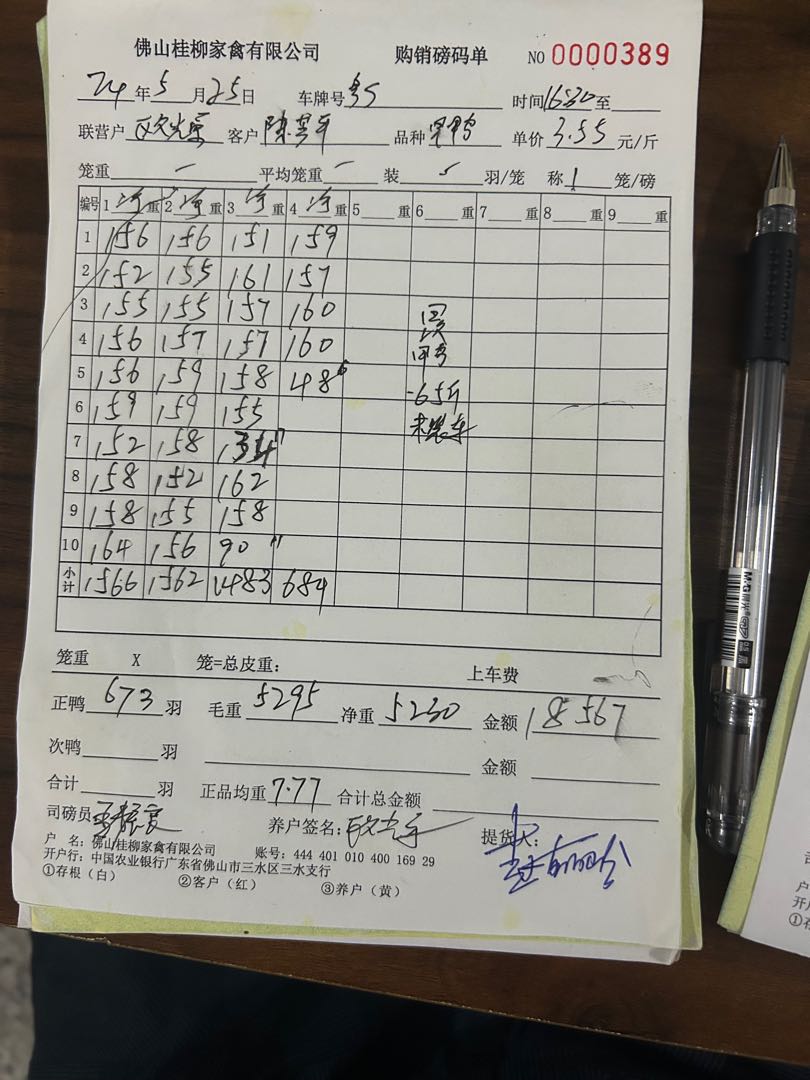 佛山桂柳家禽有限公司 购销磅码单 NO 0000389
24年5月25日 车牌号 时间16:30至
联营户 客户 品种 单价3.55元/斤
笼重 一 平均笼重 一 装 5 羽/笼 称 1 笼/磅
编号 1 净重 2 净重 3 净重 4 净重 5 重 6 重 7 重 8 重 9 重
1 156 156 151 159
2 152 155 161 157
3 155 155 157 160
4 156 157 157 160
5 156 159 158 48
6 159 159 155
7 152 158
8 158 152 162
9 158 155 158
10 164 156 90
-65斤
未装车
小计 1566 1562 1483 684
笼重 X 笼=总皮重: 上车费
正鸭 673 羽 毛重 5295 净重 5230 金额 18567
次鸭 羽 金额
合计 羽 正品均重 7.77 合计总金额
司磅员 养户签名: 提货人:
户 名: 佛山桂柳家禽有限公司 账号: 444 401 010 400 169 29
开户行: 中国农业银行广东省佛山市三水区三水支行
①存根（白） ②客户（红） ③养户（黄）
M&G 晨光